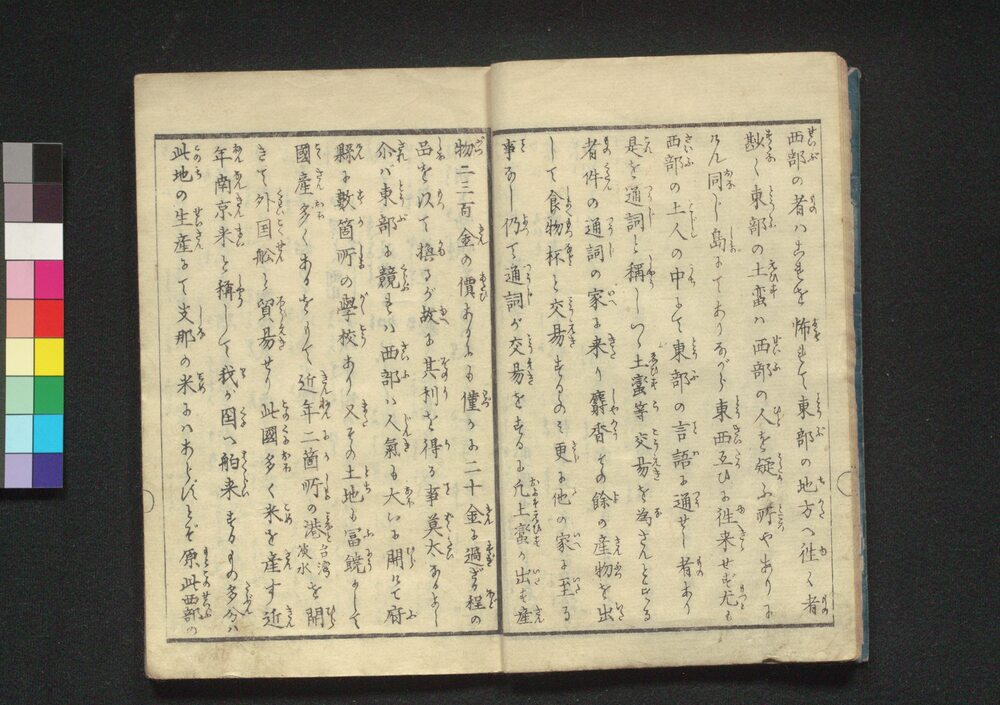 西部の者ハこれを怖れて東部の地方へ往く者
尠く東部の土蛮ハ西部の人を疑ふ所やありけ
ん同じ島にてありながら東西互ひに往来せず尤も
西部の土人の中にて東部の言語に通ぜし者あり
是を通詞と称しいへ土蛮等交易を為さんとする
者件の通詞の家に来り麝香その餘の産物を出
して食物杯と交易するのミ更に他の家に至る
事なし仍て通詞が交易をするに凡土蛮が出す産
物二三百金の價あるも僅かに二十金に過ぎざる程の
品を以て換るが故に其利を得る事莫大なりし
介ハ東部に競れバ西部ハ人気も大いに開けて府
縣に數箇所の學校あり又その土地も冨饒にして
國産多くあるをもて近年二箇所の港台湾淡水を開
きて外国舩と貿易せり此國多く米を産す近
年南京米と稱して我が国へ舶来するもの多分ハ
此地の生産にて支那の米にハあらずとぞ原此西部の